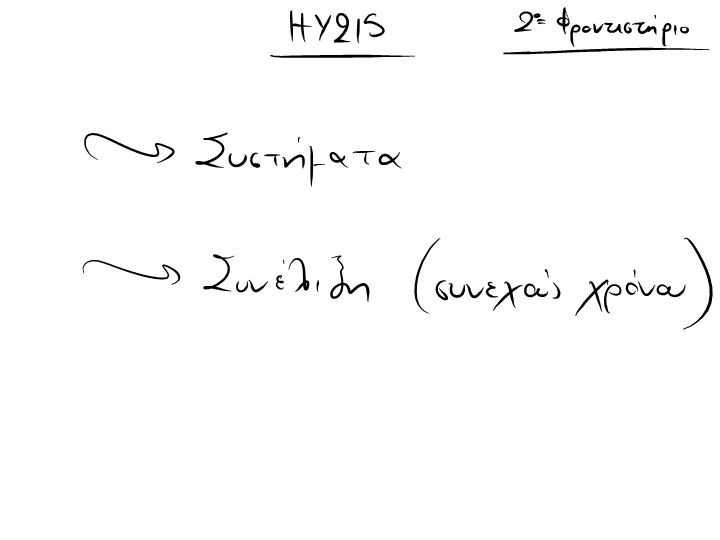 ΗΥ215 2ο Φροντιστήριο
Συστήματα
Συνέλιξη (συνεχούς χρόνου)